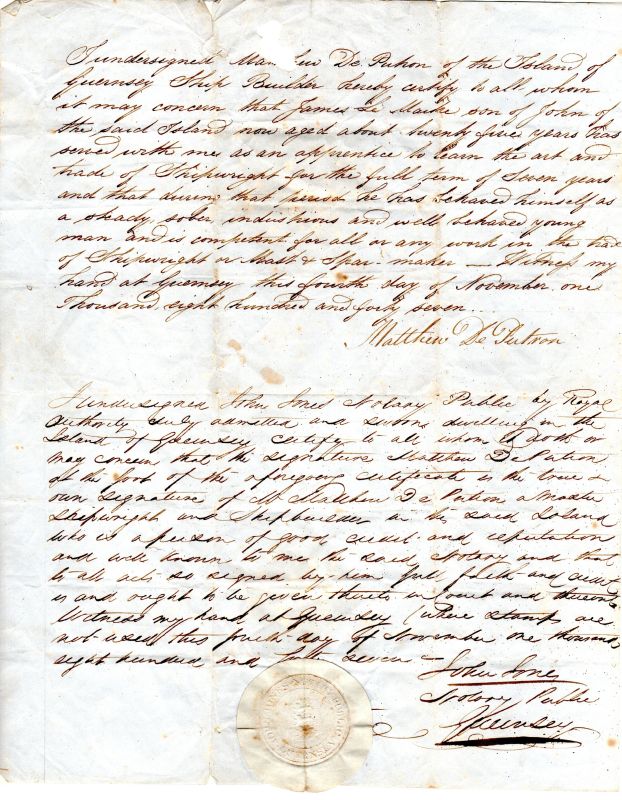 I undersigned Matthew De Putron of the Island of
Guernsey Ship Builder hereby certify to all whom
it may concern that James Le son of John of
the said Island now aged about twenty five years has
served with me as an apprentice to learn the art and
trade of Shipwright for the full term of Seven years
and that during that period he has behaved himself as
a steady sober industrious and well behaved young
man and is competent for all or any work in the trade
of Shipwright or Mast & Spar maker — Witness my
hand at Guernsey this fourth day of November one
Thousand eight hundred and forty seven
Matthew De Putron
I undersigned John Notary Public by Royal
authority duly admitted and sworn dwelling in the
Island of Guernsey certify to all whom it doth or
may concern that the signature Matthew De Putron
at the foot of the aforegoing certificate is the true &
own signature of Mr Matthew De Putron a Master
Shipwright and Shipbuilder in the said Island
who is a person of good credit and reputation
and well known to me the said Notary and that
to all acts so signed by him full faith and credit
is and ought to be given thereto in Court and thereout
Witness my hand at Guernsey (where stamps are
not used) this fourth day of November one thousand
eight hundred and seven
John
Notary Public
Guernsey